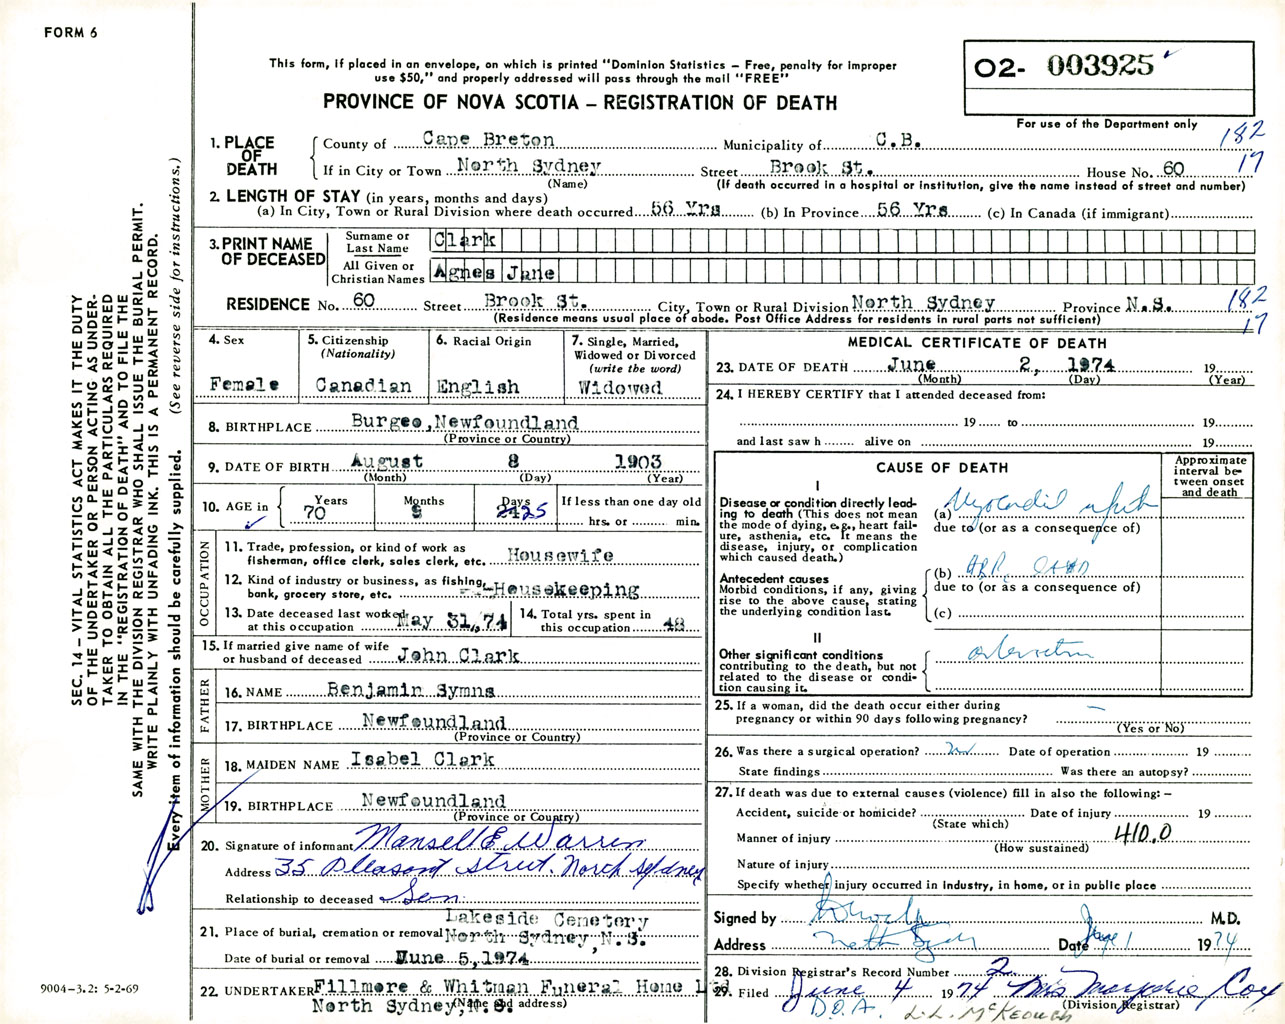 FORM 6
This form, if placed in an envelope, on which is printed "Dominion Statistics – Free, penalty for improper
use $50," and properly addressed will pass through the mail "FREE"
PROVINCE OF NOVA SCOTIA – REGISTRATION OF DEATH
O2- 003925
For use of the Department only
1. PLACE OF DEATH County of Cape Breton Municipality of C.B. 182
If in City or Town North Sydney Street Brook St. House No. 60 17
(Name) (If death occurred in a hospital or institution, give the name instead of street and number)
2. LENGTH OF STAY (in years, months and days)
(a) In City, Town or Rural Division where death occurred 56 Yrs (b) In Province 56 Yrs (c) In Canada (if immigrant)
3. PRINT NAME OF DECEASED Surname or Last Name Clark
All Given or Christian Names Agnes Jane
RESIDENCE No. 60 Street Brook St. City, Town or Rural Division North Sydney Province N.S. 182
(Residence means usual place of abode. Post Office Address for residents in rural parts not sufficient) 17
4. Sex Female
5. Citizenship (Nationality) Canadian
6. Racial Origin English
7. Single, Married, Widowed or Divorced (write the word) Widowed
8. BIRTHPLACE Burgeo, Newfoundland
(Province or Country)
9. DATE OF BIRTH August 8 1903
(Month) (Day) (Year)
10. AGE in Years 70 Months 9 Days 24 25 If less than one day old
hrs. or min.
OCCUPATION
11. Trade, profession, or kind of work as
fisherman, office clerk, sales clerk, etc. Housewife
12. Kind of industry or business, as fishing,
bank, grocery store, etc. Housekeeping
13. Date deceased last worked
at this occupation May 31, 74
14. Total yrs. spent in
this occupation 48
15. If married give name of wife
or husband of deceased John Clark
FATHER
16. NAME Benjamin Symns
17. BIRTHPLACE Newfoundland
(Province or Country)
MOTHER
18. MAIDEN NAME Isabel Clark
19. BIRTHPLACE Newfoundland
(Province or Country)
20. Signature of informant Mansell E Warren
Address 35 Pleasant Street. North Sydney
Relationship to deceased Son
21. Place of burial, cremation or removal Lakeside Cemetery
North Sydney, N.S.
Date of burial or removal June 5, 1974
22. UNDERTAKER Fillmore & Whitman Funeral Home Ltd
North Sydney, N.S. (Name and address)
MEDICAL CERTIFICATE OF DEATH
23. DATE OF DEATH June 2, 1974 19
(Month) (Day) (Year)
24. I HEREBY CERTIFY that I attended deceased from:
19 to 19
and last saw h alive on 19
CAUSE OF DEATH
Approximate interval between onset and death
I
Disease or condition directly leading to death (This does not mean the mode of dying, e.g., heart failure, asthenia, etc. It means the disease, injury, or complication which caused death.)
(a)
due to (or as a consequence of)
Antecedent causes
Morbid conditions, if any, giving rise to the above cause, stating the underlying condition last.
(b)
due to (or as a consequence of)
(c)
II
Other significant conditions
contributing to the death, but not related to the disease or condition causing it.
25. If a woman, did the death occur either during
pregnancy or within 90 days following pregnancy? –
(Yes or No)
26. Was there a surgical operation? no Date of operation 19
State findings Was there an autopsy?
27. If death was due to external causes (violence) fill in also the following: –
Accident, suicide or homicide? Date of injury 19
(State which)
Manner of injury 410.0
(How sustained)
Nature of injury
Specify whether injury occurred in Industry, in home, or in public place
Signed by M.D.
Address North Sydney Date 1974
28. Division Registrar's Record Number 2
29. Filed June 4 1974 Mrs Marjorie Cox
(Division Registrar)
D.O.A. L.L. McKeough
SEC. 14 – VITAL STATISTICS ACT MAKES IT THE DUTY
OF THE UNDERTAKER OR PERSON ACTING AS UNDER-
TAKER TO OBTAIN ALL THE PARTICULARS REQUIRED
IN THE "REGISTRATION OF DEATH" AND TO FILE THE
SAME WITH THE DIVISION REGISTRAR WHO SHALL ISSUE THE BURIAL PERMIT.
WRITE PLAINLY WITH UNFADING INK. THIS IS A PERMANENT RECORD.
Every item of information should be carefully supplied. (See reverse side for instructions.)
9004-3.2: 5-2-69